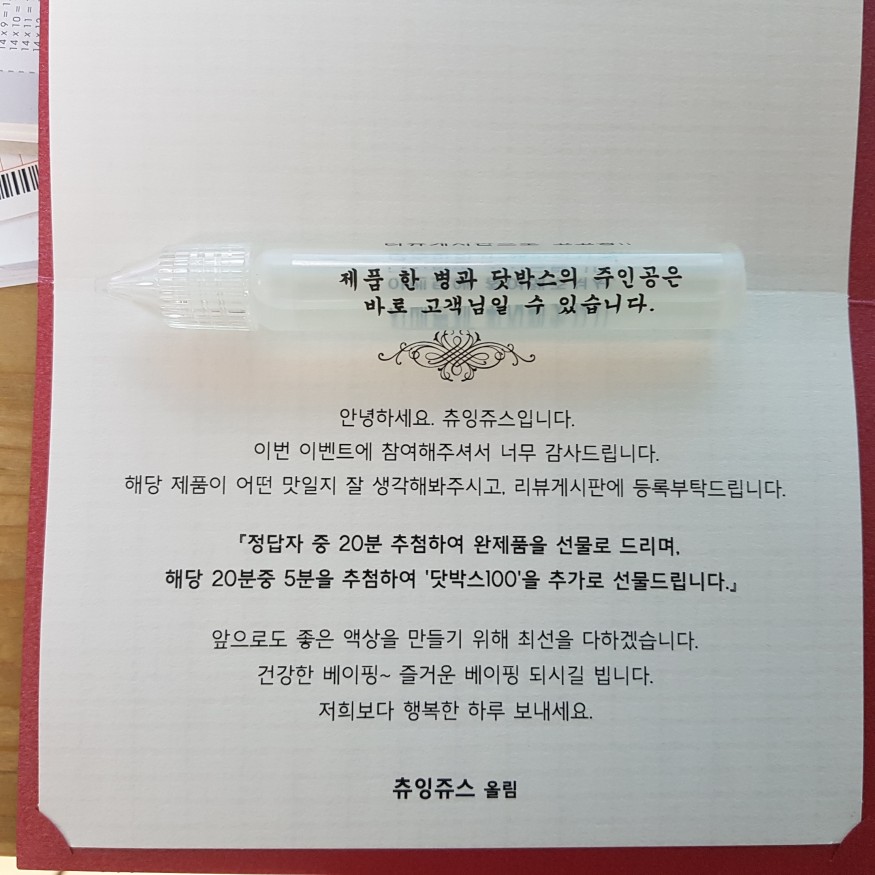 14x9=1
14x10=
14x11=
제품 한 병과 닷박스의 주인공은
바로 고객님일 수 있습니다.
안녕하세요. 츄잉쥬스입니다.
이번 이벤트에 참여해주셔서 너무 감사드립니다.
해당 제품이 어떤 맛일지 잘 생각해봐주시고, 리뷰게시판에 등록부탁드립니다.
『정답자 중 20분 추첨하여 완제품을 선물로 드리며,
해당 20분중 5분을 추첨하여 '닷박스100'을 추가로 선물드립니다.』
앞으로도 좋은 액상을 만들기 위해 최선을 다하겠습니다.
건강한 베이핑~ 즐거운 베이핑 되시길 빕니다.
저희보다 행복한 하루 보내세요.
츄잉쥬스 올림